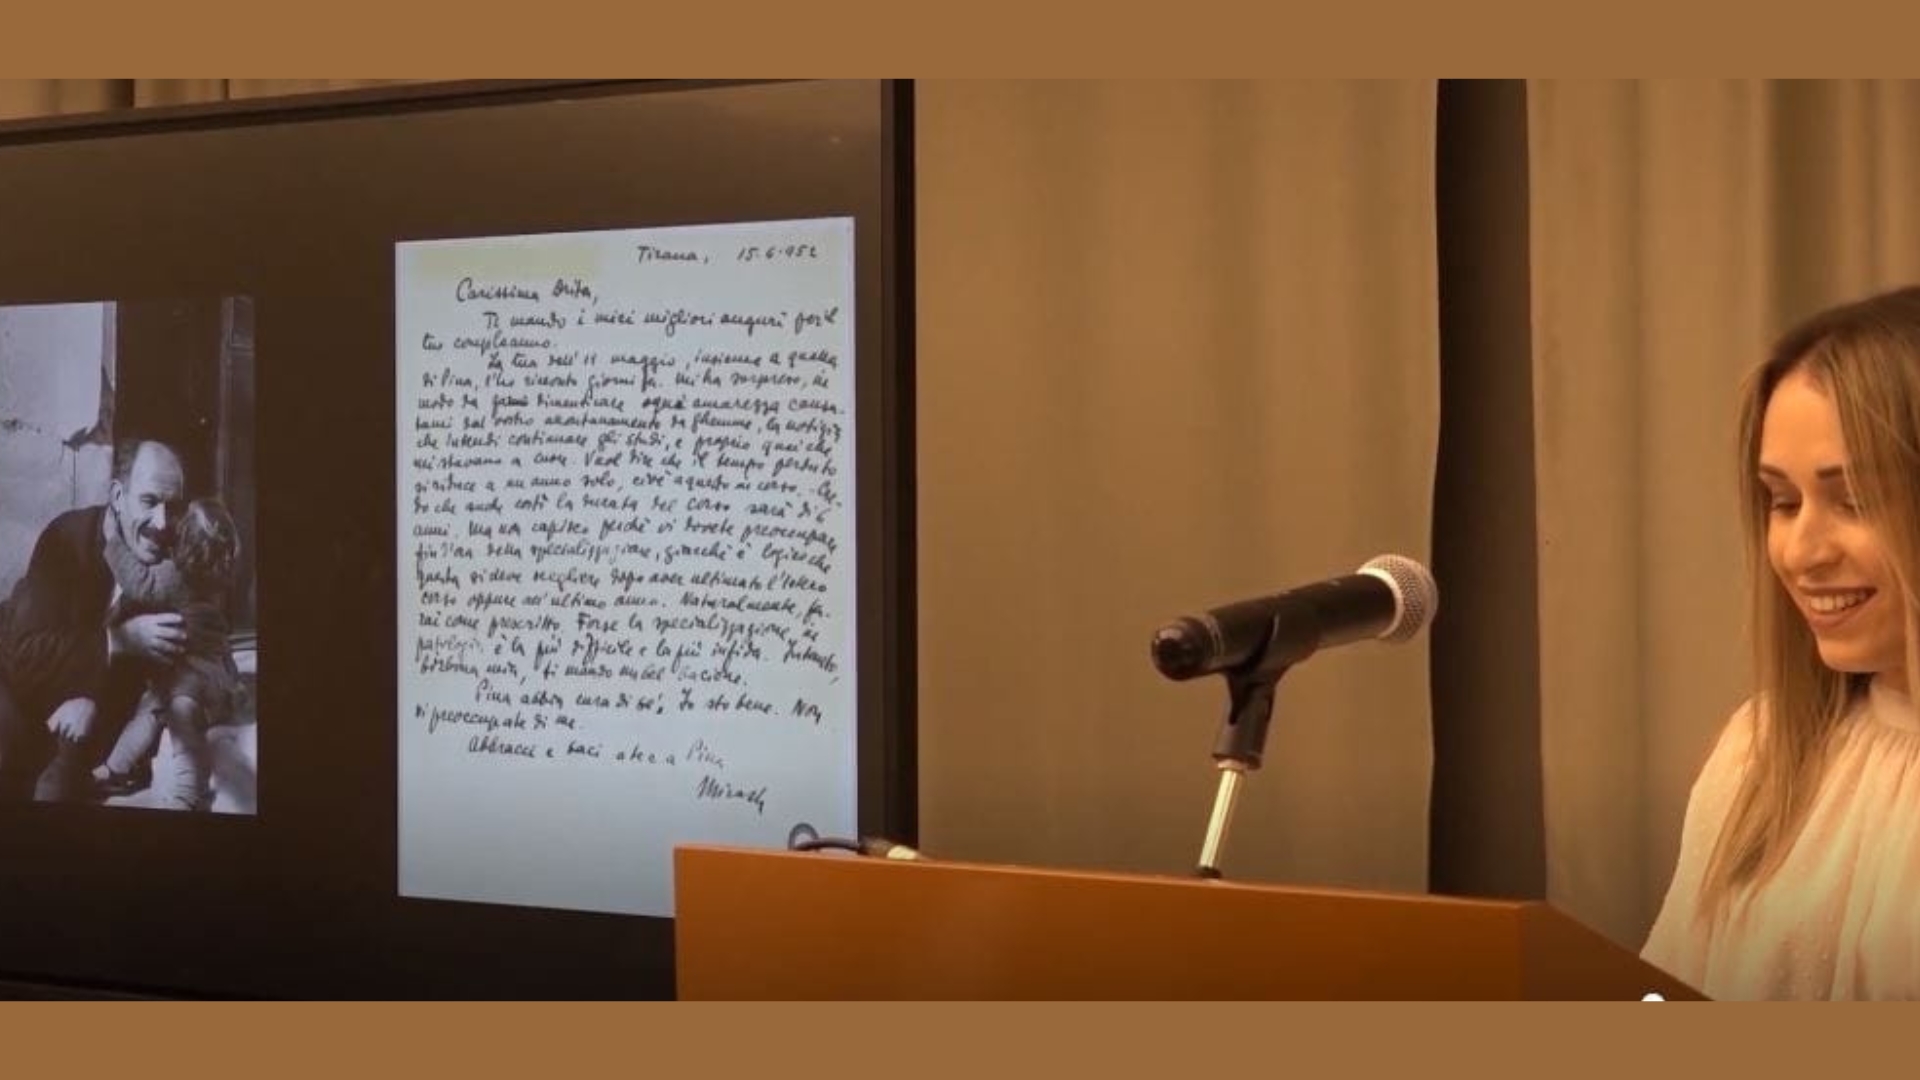 Tirana, 15.6.952
Carissima Drita,
Ti mando i miei migliori auguri per il
tuo compleanno.
La tua dell' 11 maggio, insieme a quella
di Pina, l'ho ricevuta giorni fa. Mi ha sorpreso, in
modo da farmi dimenticare ogni amarezza causa-
tami dal vostro allontanamento da, la notizia
che intendi continuare gli studi, e proprio quei che
mi stavano a cuore. Vuol dire che il tempo perduto
si riduce a un anno solo, cioè a questo in corso. Cre-
do che anche costì la durata del corso sarà di 6
anni. Ma non capisco perchè vi dovete preoccupare
fin d'ora della specializzazione, giacchè è logico che
questa si deve scegliere dopo aver ultimato l'intero
corso oppure all'ultimo anno. Naturalmente, fa-
rai come prescritto. Forse la specializzazione in
patologia è la più difficile e la più infida. Intanto,
birbona mia, ti mando un bel bacione.
Pina abbia cura di sè. Io sto bene. Non
vi preoccupate di me.
Abbracci e baci a te e a Pina
Mirash